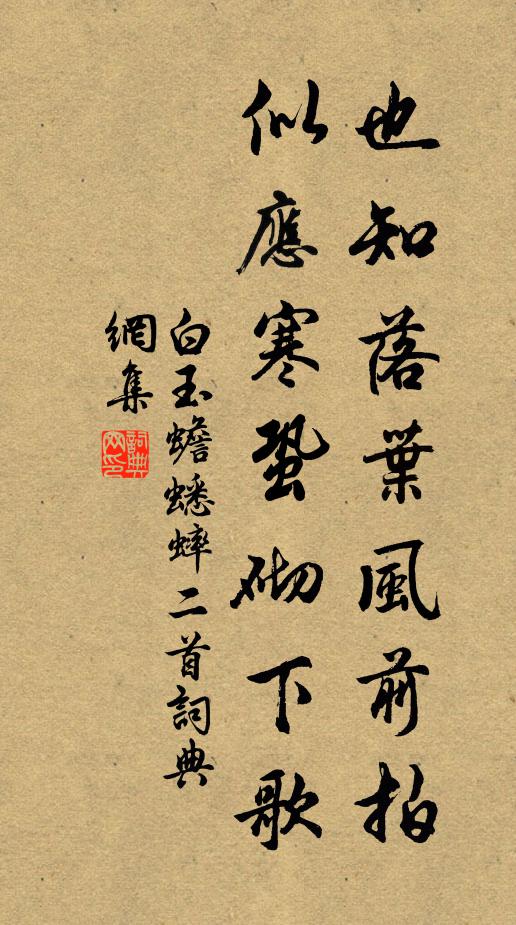 也知落葉風前拍
似應寒蛩砌下歌
白玉蟾蟋蟀二首詞典
網集
詞典網印